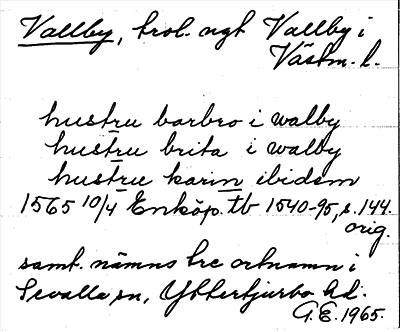 Vallby, trol. ngt Vallby i
Västm. l.
hustru barbro i walby
hustru brita i walby
hustru karin ibidem
1565 10/4 Enköp. tb 1540-95, s. 144.
orig.
samt. nämns tre ortnamn i
Sevalla sn, Yttertjurbo hd.
G.E. 1965.